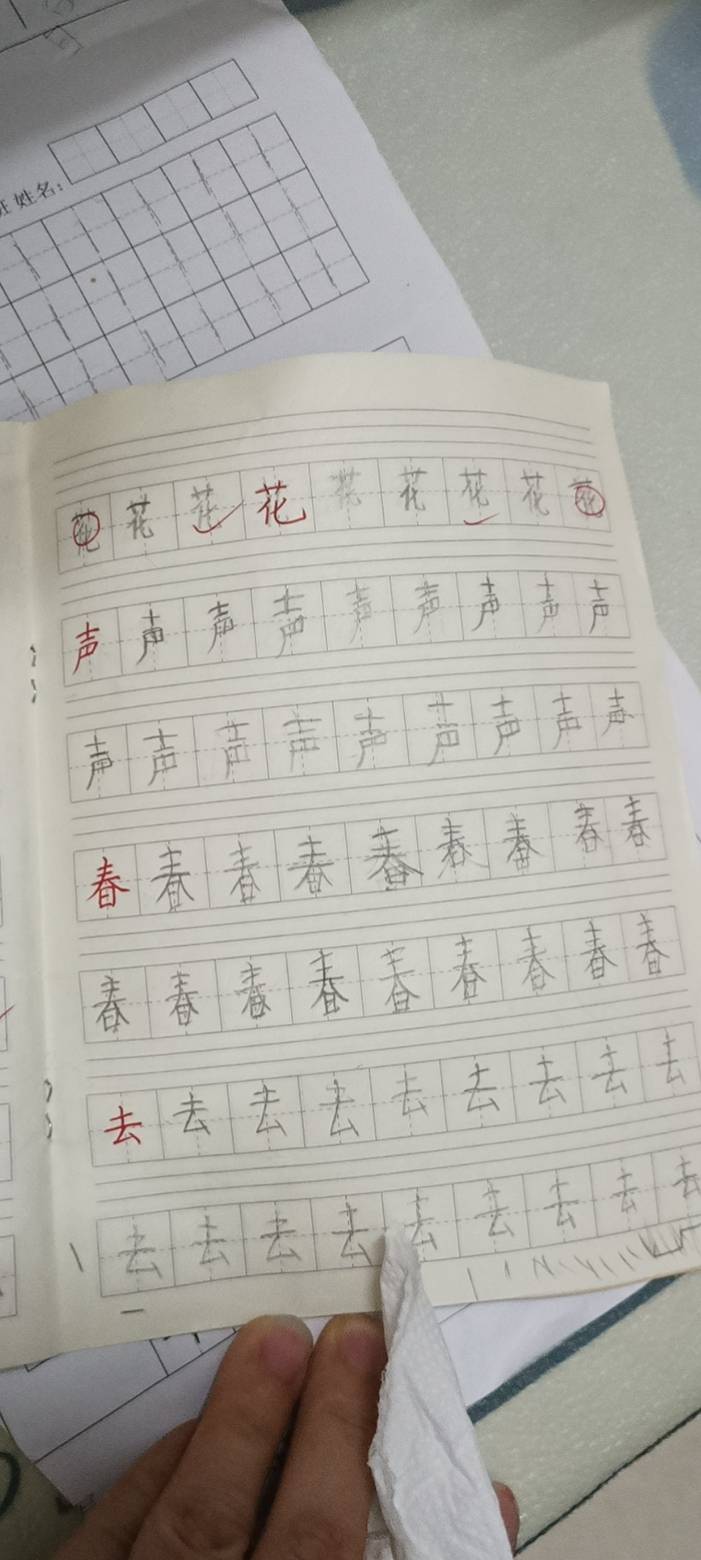 姓名：
花花花花花花花花花
声声声声声声声声声
声声声声声声声声声
春春春春春春春春春
春春春春春春春春春
去去去去去去去去去
去去去去去去去去去